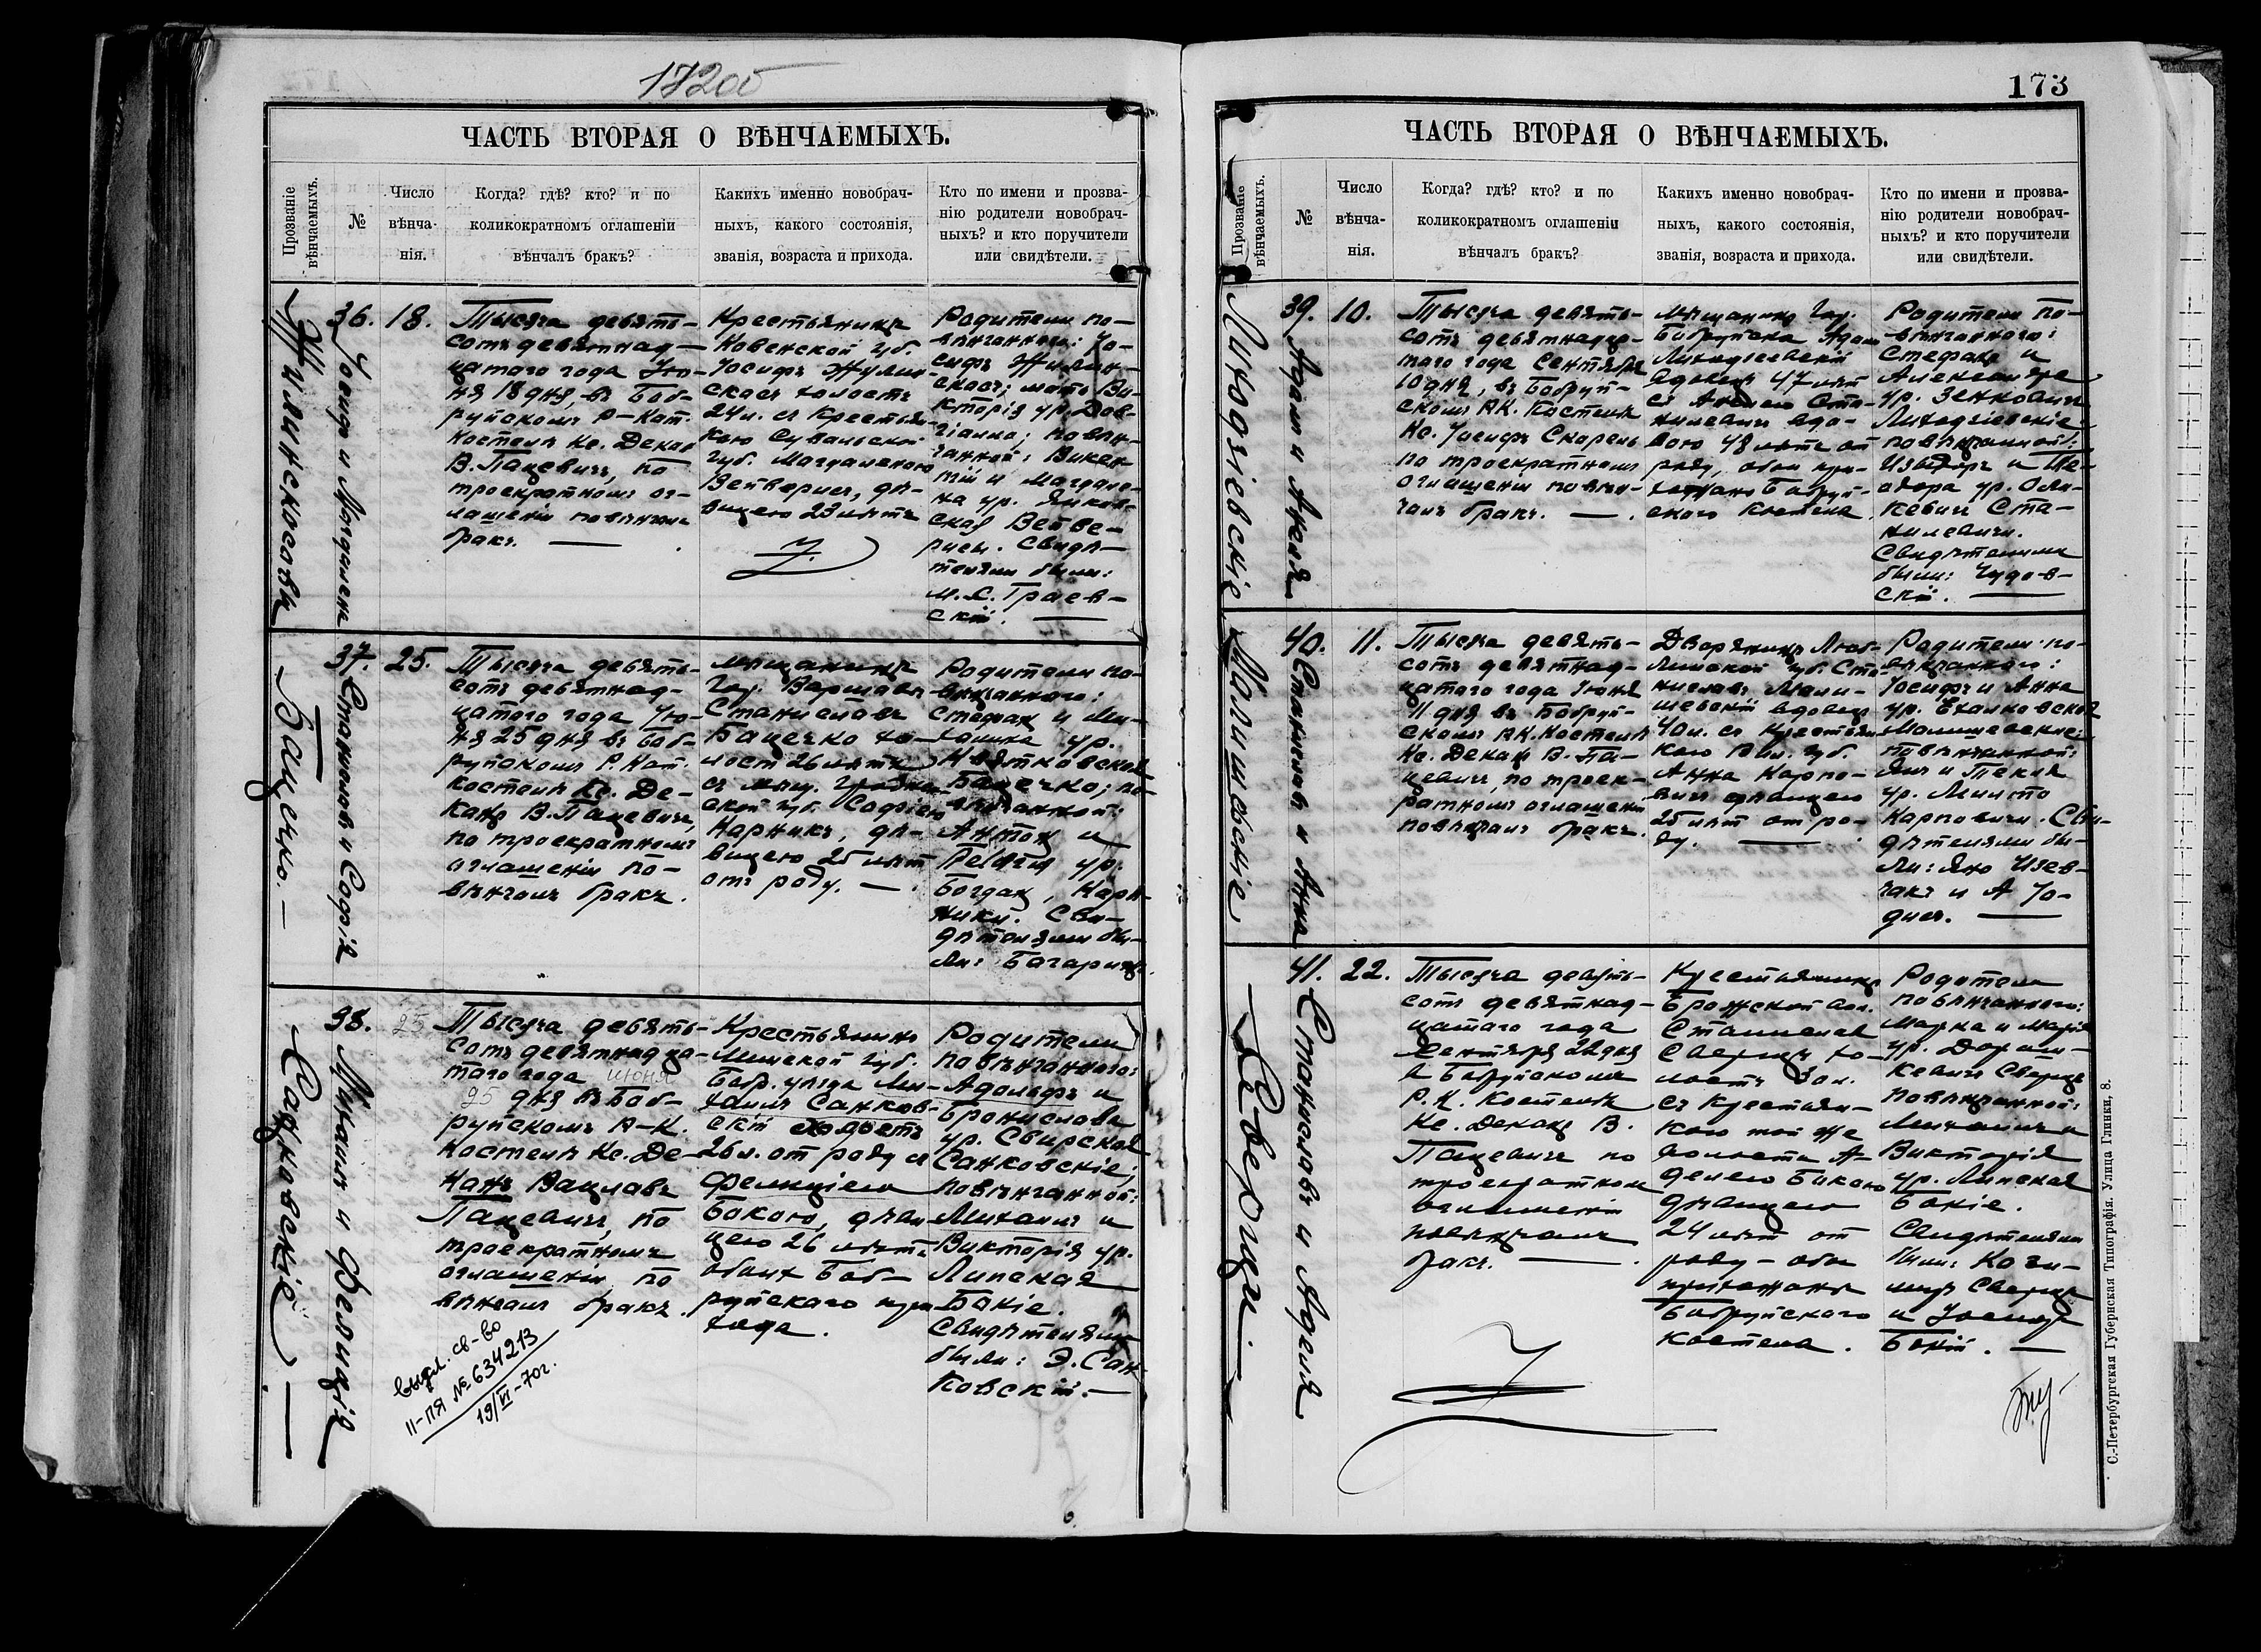 172об
ЧАСТЬ ВТОРАЯ О ВѢНЧАЕМЫХЪ.
Прозваніе вѣнчаемыхъ.
№
Число вѣнча- нія.
Когда? гдѣ? кто? и по
коликократномъ оглашеніи
вѣнчалъ бракъ?
Какихъ именно новобрач-
ныхъ, какого состоянія,
званія, возраста и прихода.
Кто по имени и прозва-
нію родители новобрач-
ныхъ? и кто поручители
или свидѣтели.
Жилинскосовы
36.
Іосифъ и Магдалена
18.
Тысяча девять-
сотъ девятнад-
цатаго года Ію-
ня 18 дня, въ Боб-
руйскомъ Р-Кат.
Костелѣ Кс. Декан
В. Пацевичъ, по
троекратномъ ог-
лашеніи повѣнчалъ
бракъ.
Крестьянинъ
Ковенской губ.
Іосифъ
холостъ
24 л. съ Крестьян-
кою Сувальской
губ. Магдаленою
дѣ-
вицею 23 лѣтъ
Родители по-
вѣнчаннаго: Іо-
сифъ
мать Ви-
кторія ур.
повѣн-
чанной: Викен-
тій и Магдале-
на ур.
Свидѣ-
телями были:
Граев-
скій.
Бацечко.
37.
Станиславъ и Софія
25.
Тысяча девять-
сотъ девятнад-
цатаго года Ію-
ня 25 дня въ Боб-
руйскомъ Р. Кат.
костелѣ Кс. Де-
канъ В. Пацевичъ,
по троекратномъ
оглашеніи по-
вѣнчалъ бракъ.
Мѣщанинъ
Гор. Варшавы
Станиславъ
Бацечко хо-
лост 26 лѣтъ
съ мѣщ. Гроднен-
ской губ. Софіею
Карникъ, дѣ-
вицею 25 лѣт
отъ роду.
Родители по-
вѣнчаннаго:
Стефан и Ми-
халина ур.
Бацечко; по-
вѣнчанной:
Антон и
ур.
Богдан, Кар-
ники. Сви-
дѣтелями бы-
ли:
Санковскіе.
38.
Михаилъ и Фелиція
25
Тысяча девять-
сотъ девятнадца-
таго года июня
25 дня въ Боб-
руйскомъ Р-К.
Костелѣ Кс. Де-
канъ Вацлавъ
Пацевичъ, по
троекратномъ
оглашеніи по
вѣнчалъ бракъ.
Крестьянинъ
Минской губ.
Бобр. уѣзда Ми-
хаилъ Санков-
скій холостъ
26 л. от роду съ
Фелиціею
Бокою, дѣви
цею 26 лѣтъ
обоих Боб-
руйскаго при
хода.
Родители
повѣнчаннаго:
Адольфъ и
Бронислава
ур. Свирская
Санковскіе;
повѣнчанной:
Михаилъ и
Викторія ур.
Липская
Бокіе.
Свидѣтелями
были: Э. Сан-
ковскій.
выдл. св-во
II-ПЯ № 634213
19/VI-70г.
173
ЧАСТЬ ВТОРАЯ О ВѢНЧАЕМЫХЪ.
Прозваніе вѣнчаемыхъ.
№
Число вѣнча- нія.
Когда? гдѣ? кто? и по
коликократномъ оглашеніи
вѣнчалъ бракъ?
Какихъ именно новобрач-
ныхъ, какого состоянія,
званія, возраста и прихода.
Кто по имени и прозва-
нію родители новобрач-
ныхъ? и кто поручители
или свидѣтели.
Лиходзіевскіе
39.
Адамъ и Анеля
10.
Тысяча девять-
сотъ девятнадца-
таго года Сентября
10 дня, въ Бобруй-
скомъ Р.К. Костелѣ
Кс. Іосифъ Скорель
по троекратномъ
оглашеніи повѣн-
чалъ бракъ.
Мѣщанинъ Гор.
Бобруйска Адам
Лиходзіевскій
вдовецъ 47 лѣт
съ Анелею Ста-
нилевичъ вдо-
вою 48 лѣтъ от
роду, обои при-
хожане Бобруй-
скаго Костела.
Родители по-
вѣнчаннаго:
Стефанъ и
Александра
ур. Зенковичъ
Лиходзіевскіе
повѣнчанной:
Изыдоръ и Те-
одора ур.
Ста-
нилевичи.
Свидѣтелями
были: Чудов-
скій.
Малишевскіе
40.
Станиславъ и Анна
11.
Тысяча девять-
сотъ девятнад-
цатаго года Іюня
11 дня въ Бобруй-
скомъ Р.К. Костелѣ
Кс. Декан В. Па-
цевичъ, по троек-
ратномъ оглашеніи
повѣнчалъ бракъ.
Дворянинъ Люб-
линской губ. Ста-
ниславъ Мали-
шевскій вдовецъ
40 л. съ Крестьян-
кою Вил. губ.
Анна Карпо-
вичъ дѣвицею
25 лѣт от ро-
ду.
Родители по-
вѣнчаннаго:
Іосифъ и Анна
ур.
Малишевскіе;
повѣнчанной:
Янъ и Текля
ур.
Карповичи. Сви-
дѣтелями бы-
ли: Яно
и А
Сверщи.
41.
Станиславъ и Аделя
22.
Тысяча девять-
сотъ девятнад-
цатаго года
Сентября 22 дня
в Бобруйскомъ
Р.К. Костелѣ
Кс. Деканъ В.
Пацевичъ по
троекратном
оглашеніи
повѣнчалъ
бракъ.
Крестьянинъ
Брожской вол.
Станислав
Сверщъ хо-
лостъ
съ Крестьян-
кою той же
волости А-
делею Бокою
дѣвицею
24 лѣт от
роду - обои
прихожане
Бобруйскаго
костела.
Родители
повѣнчаннаго:
Марка и Марія
ур.
Сверщъ
повѣнчанной:
Михаилъ и
Викторія
ур. Липская
Бокіе.
Свидѣтелями
были: Кази-
миръ Сверщъ
и Іосифъ
Бокій.
С.-Петербургская Губернская Типографія. Улица Глинки, 8.